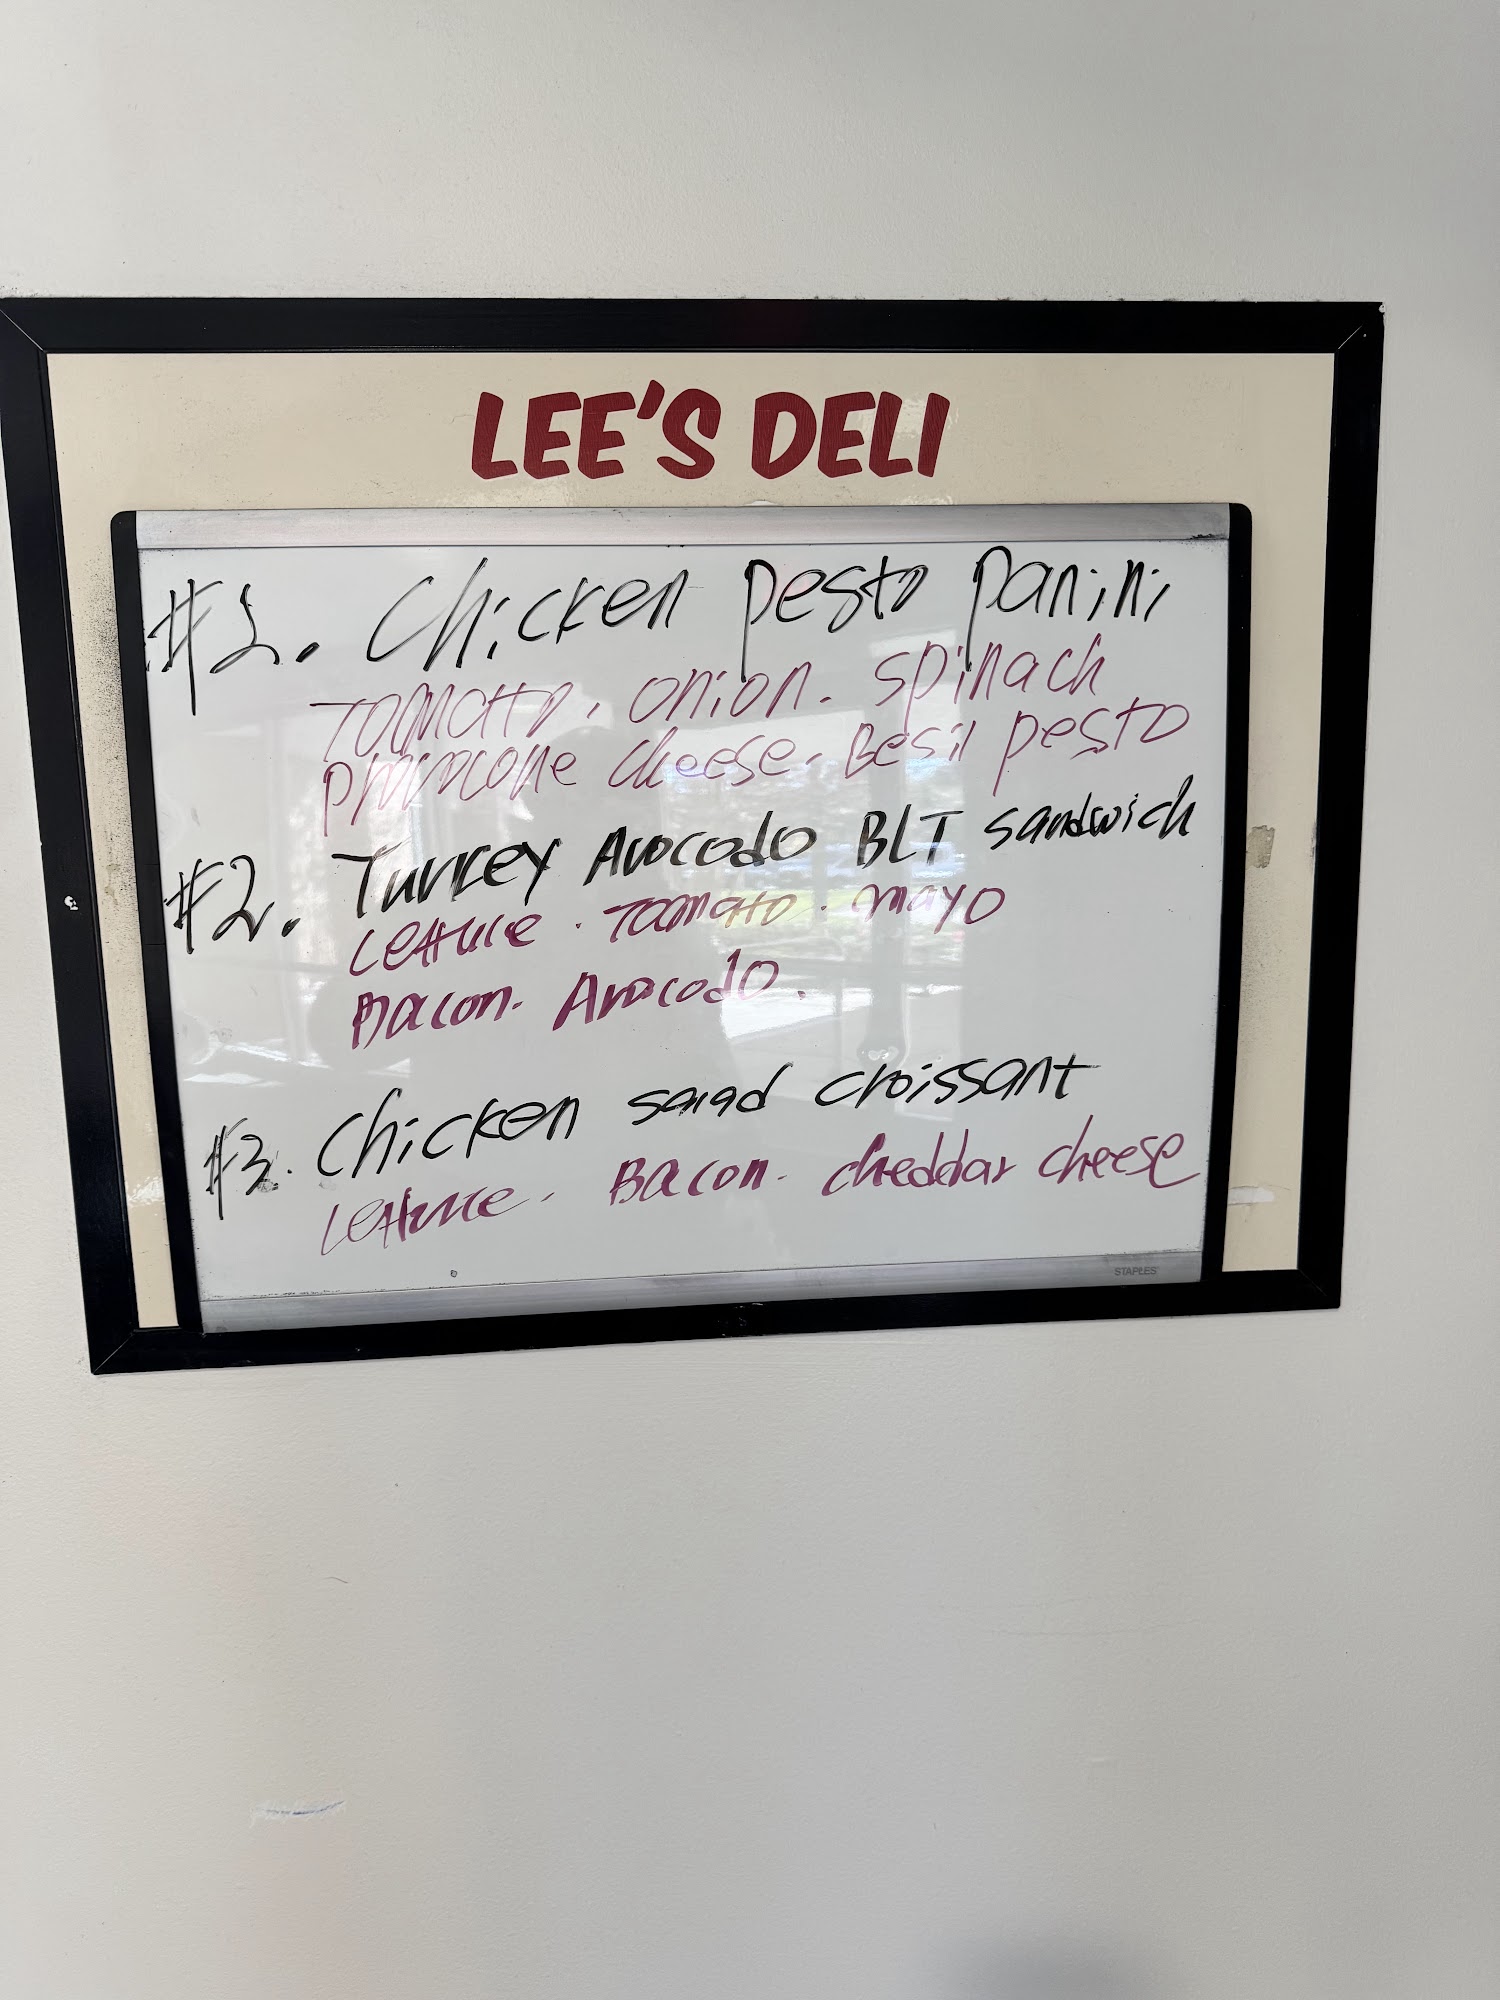 LEE'S DELI
#1. Chicken pesto panini
Tomatto, onion. spinach
provocone cheese. Besil pesto
#2. Turkey Avocodo BLT sandwich
Lettuce. Tomato. mayo
Bacon. Avocodo.
#3. Chicken salad croissant
Lettuce. Bacon. cheddar cheese
STAPLES